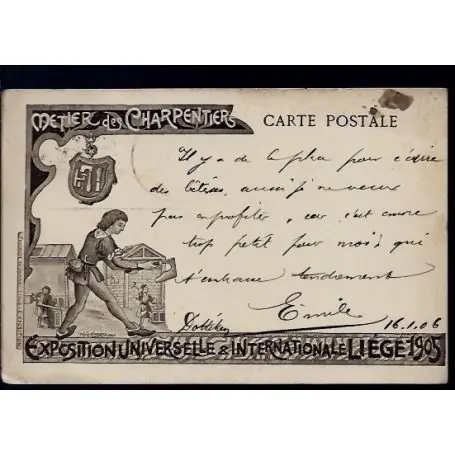 METIER des CHARPENTIERS
CARTE POSTALE
Il y a de la place pour écrire
des bêtises, aussi je ne veux
pas en profiter, car c'est encore
trop petit pour moi qui
t'embrasse tendrement
Emile
16.1.06
EXPOSITION UNIVERSELLE & INTERNATIONALE LIÉGE 1905